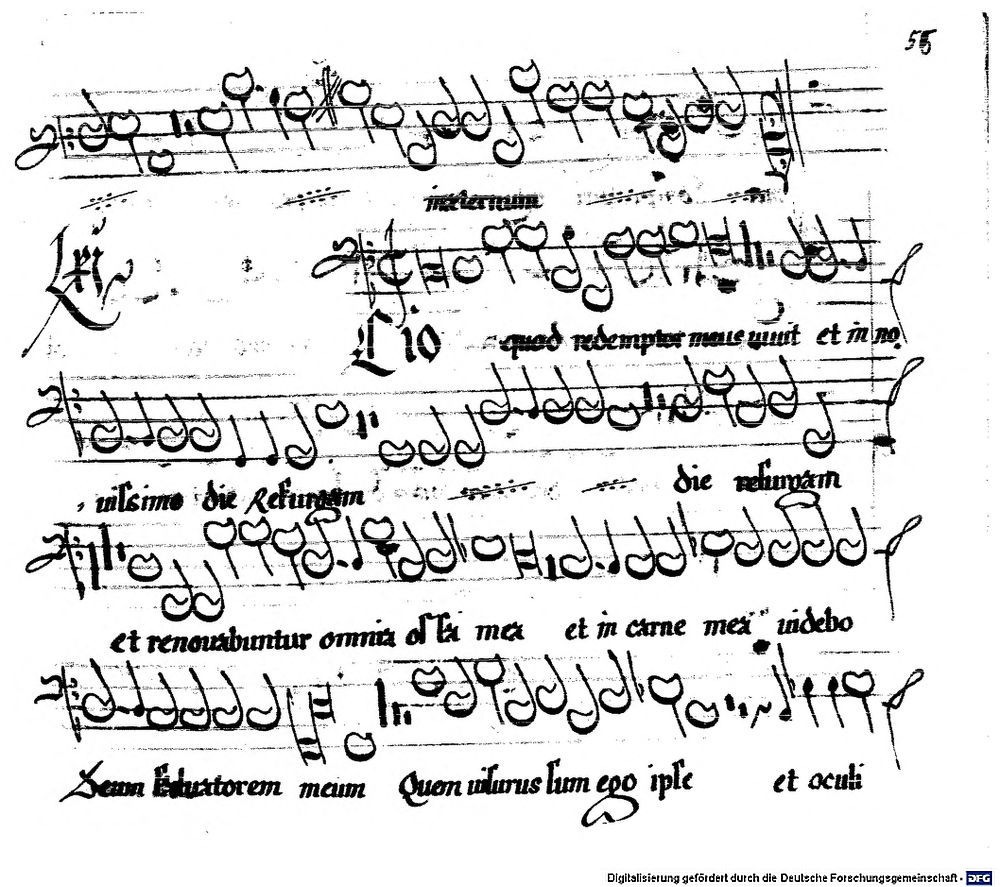 55
in eternum
Scio quod redemptor meus uiuit et in no
uissimo die Resurgam die resurgam
et renouabuntur omnia ossa mea et in carne mea uidebo
Deum saluatorem meum Quem uisurus sum ego ipse et oculi
Digitalisierung gefördert durch die Deutsche Forschungsgemeinschaft - DFG